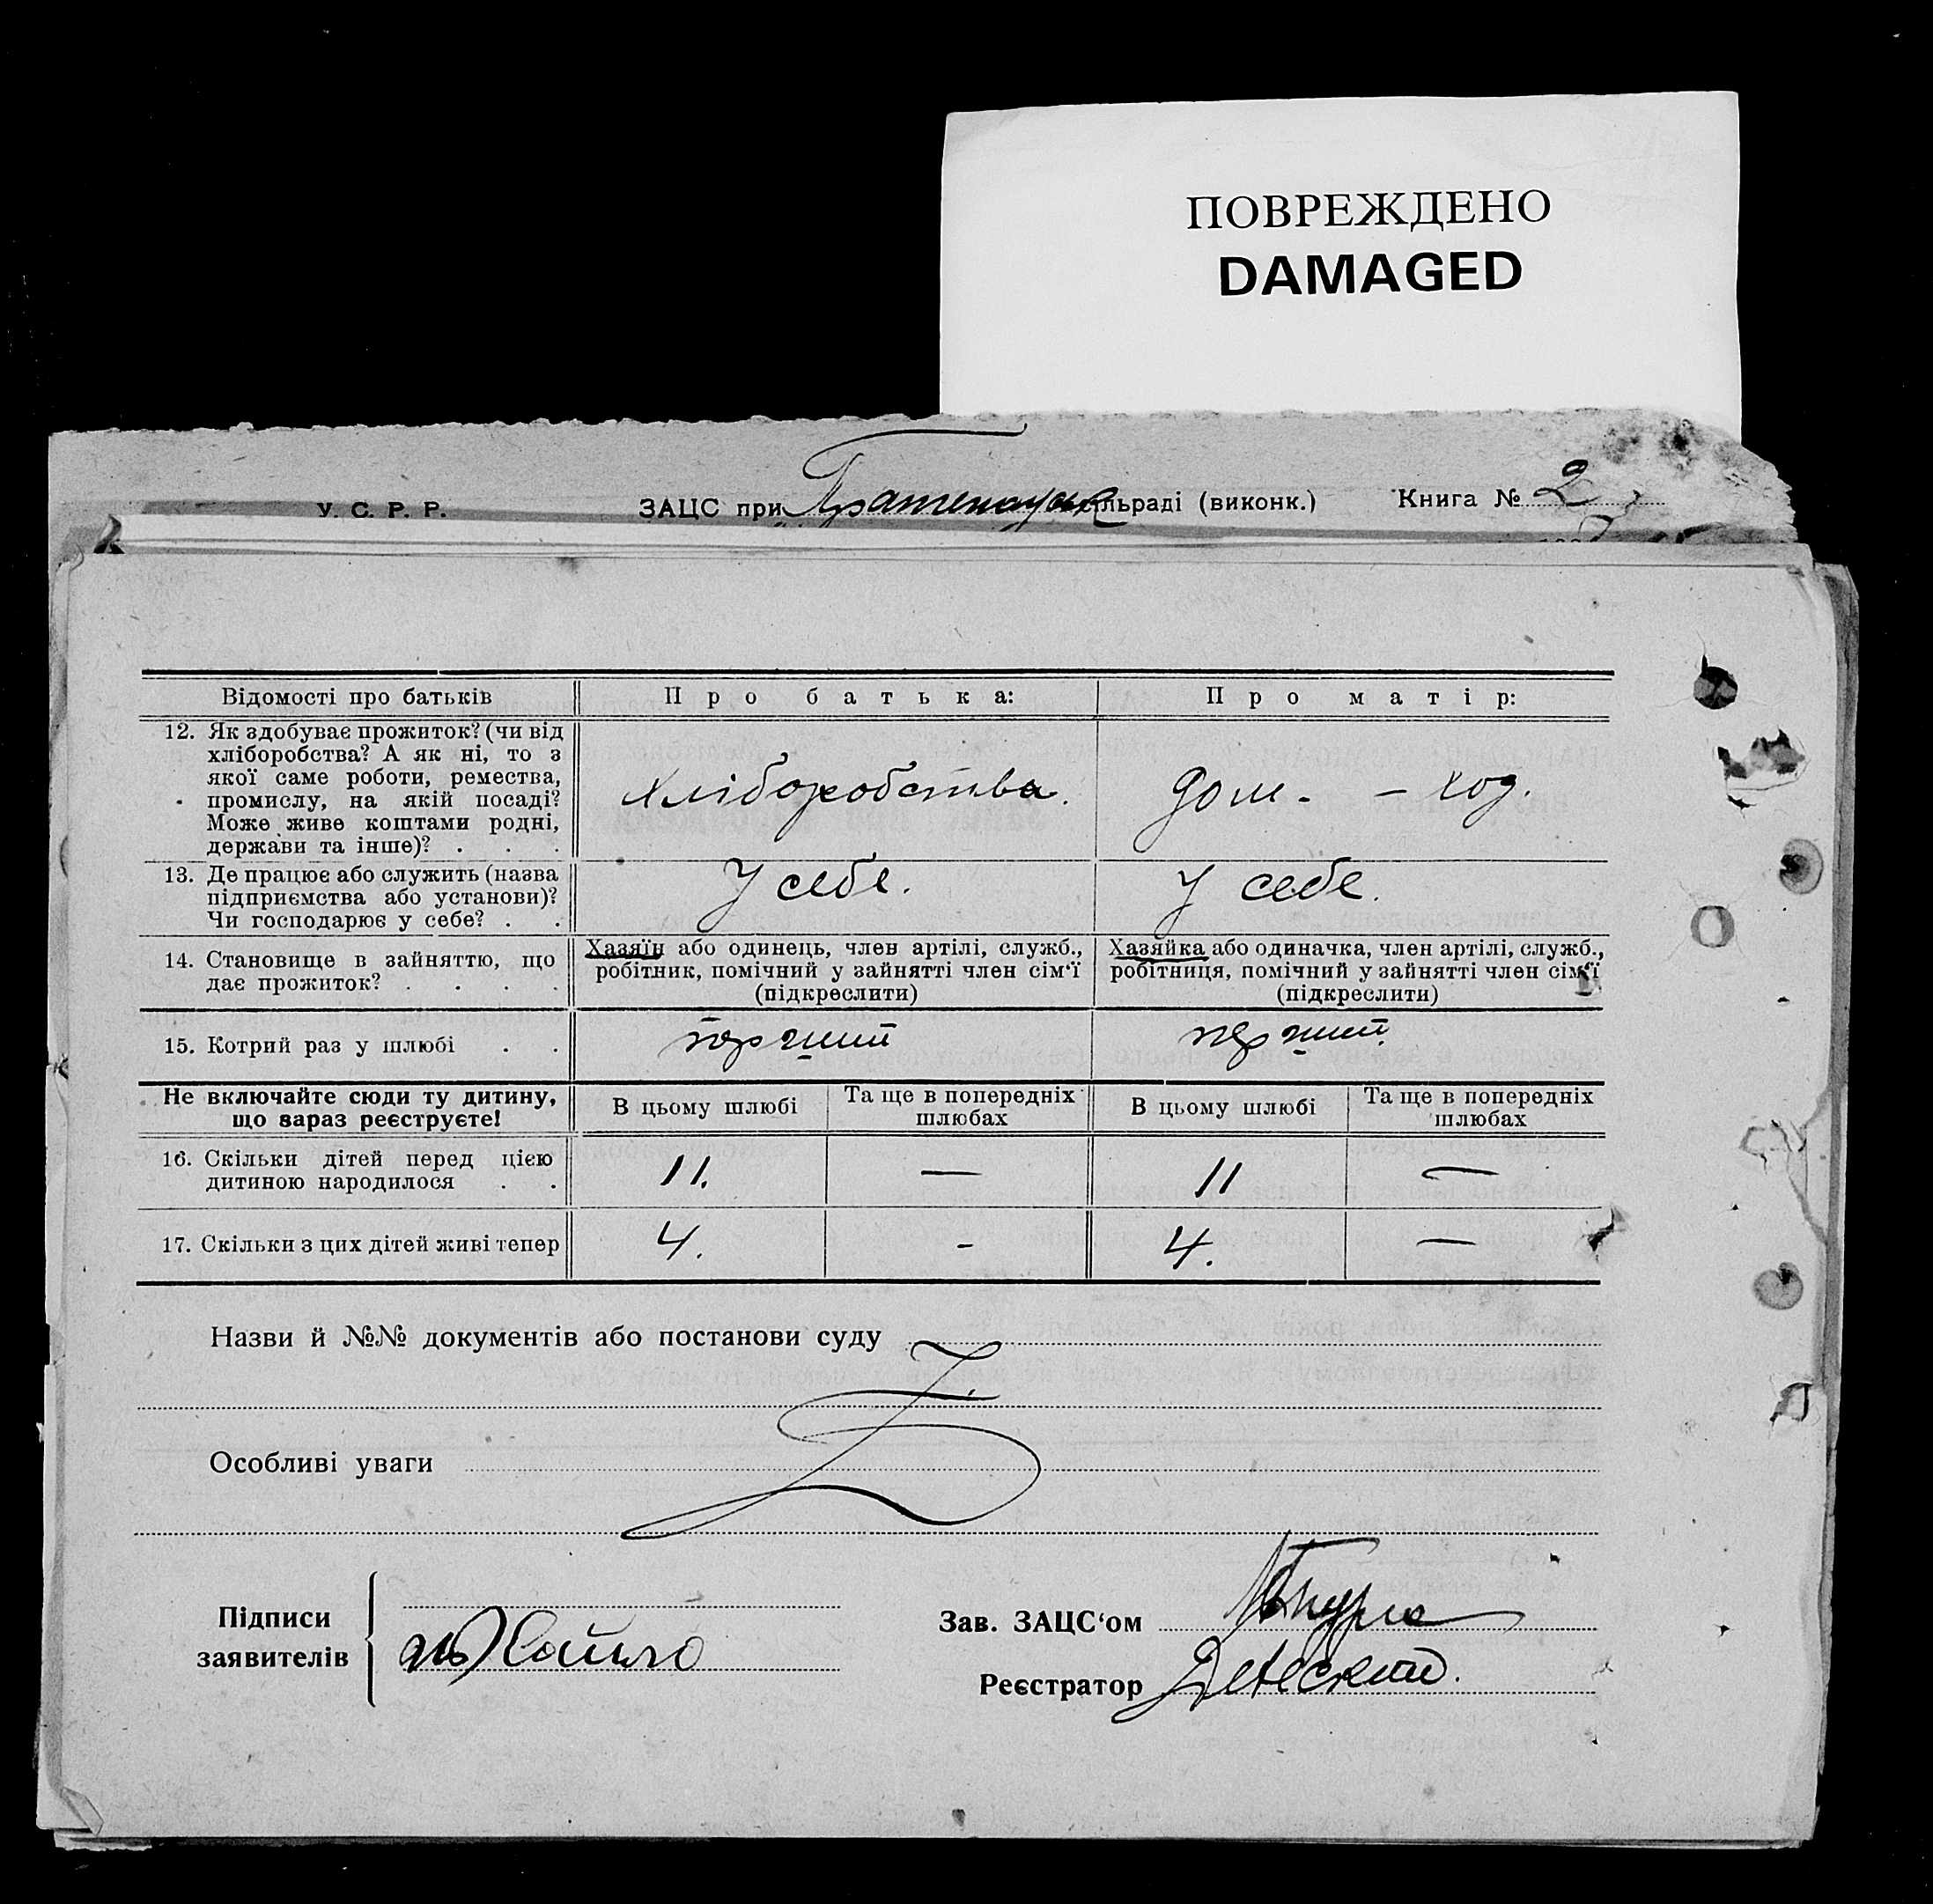 ПОВРЕЖДЕНО
DAMAGED
У. С. Р. Р. ЗАЦС при льраді (виконк.) Книга № 2
Відомості про батьків
Про батька:
Про матір:
12. Як здобуває прожиток? (чи від
хліборобства? А як ні, то з
якої саме роботи, ремества,
промислу, на якій посаді?
Може живе коштами родні,
держави та інше)? . . .
хліборобства.
дом. - - ход.
13. Де працює або служить (назва
підприємства або установи)?
Чи господарює у себе? . .
У себе.
У себе.
14. Становище в зайняттю, що
дає прожиток? . . . .
Хазяїн або одинець, члев артілі, служб.,
робітник, помічний у зайнятті член сім‘ї
(підкреслити)
Хазяйка або одиначка, член артілі, служб.,
робітниця, помічний у зайнятті член сім‘ї
(підкреслити)
15. Котрий раз у шлюбі . .
перший
перший
Не включайте сюди ту дитину,
що вараз реєструєте!
В цьому шлюбі
Та ще в попередніх
шлюбах
В цьому шлюбі
Та ще в попередніх
шлюбах
16. Скільки дітей перед цією
дитиною народилося . .
11.
—
11
—
17. Скільки з цих дітей живі тепер
4.
-
4.
—
Назви й №№ документів або постанови суду
Особливі уваги
Підписи
заявителів
Зав. ЗАЦС‘ом
Реєстратор